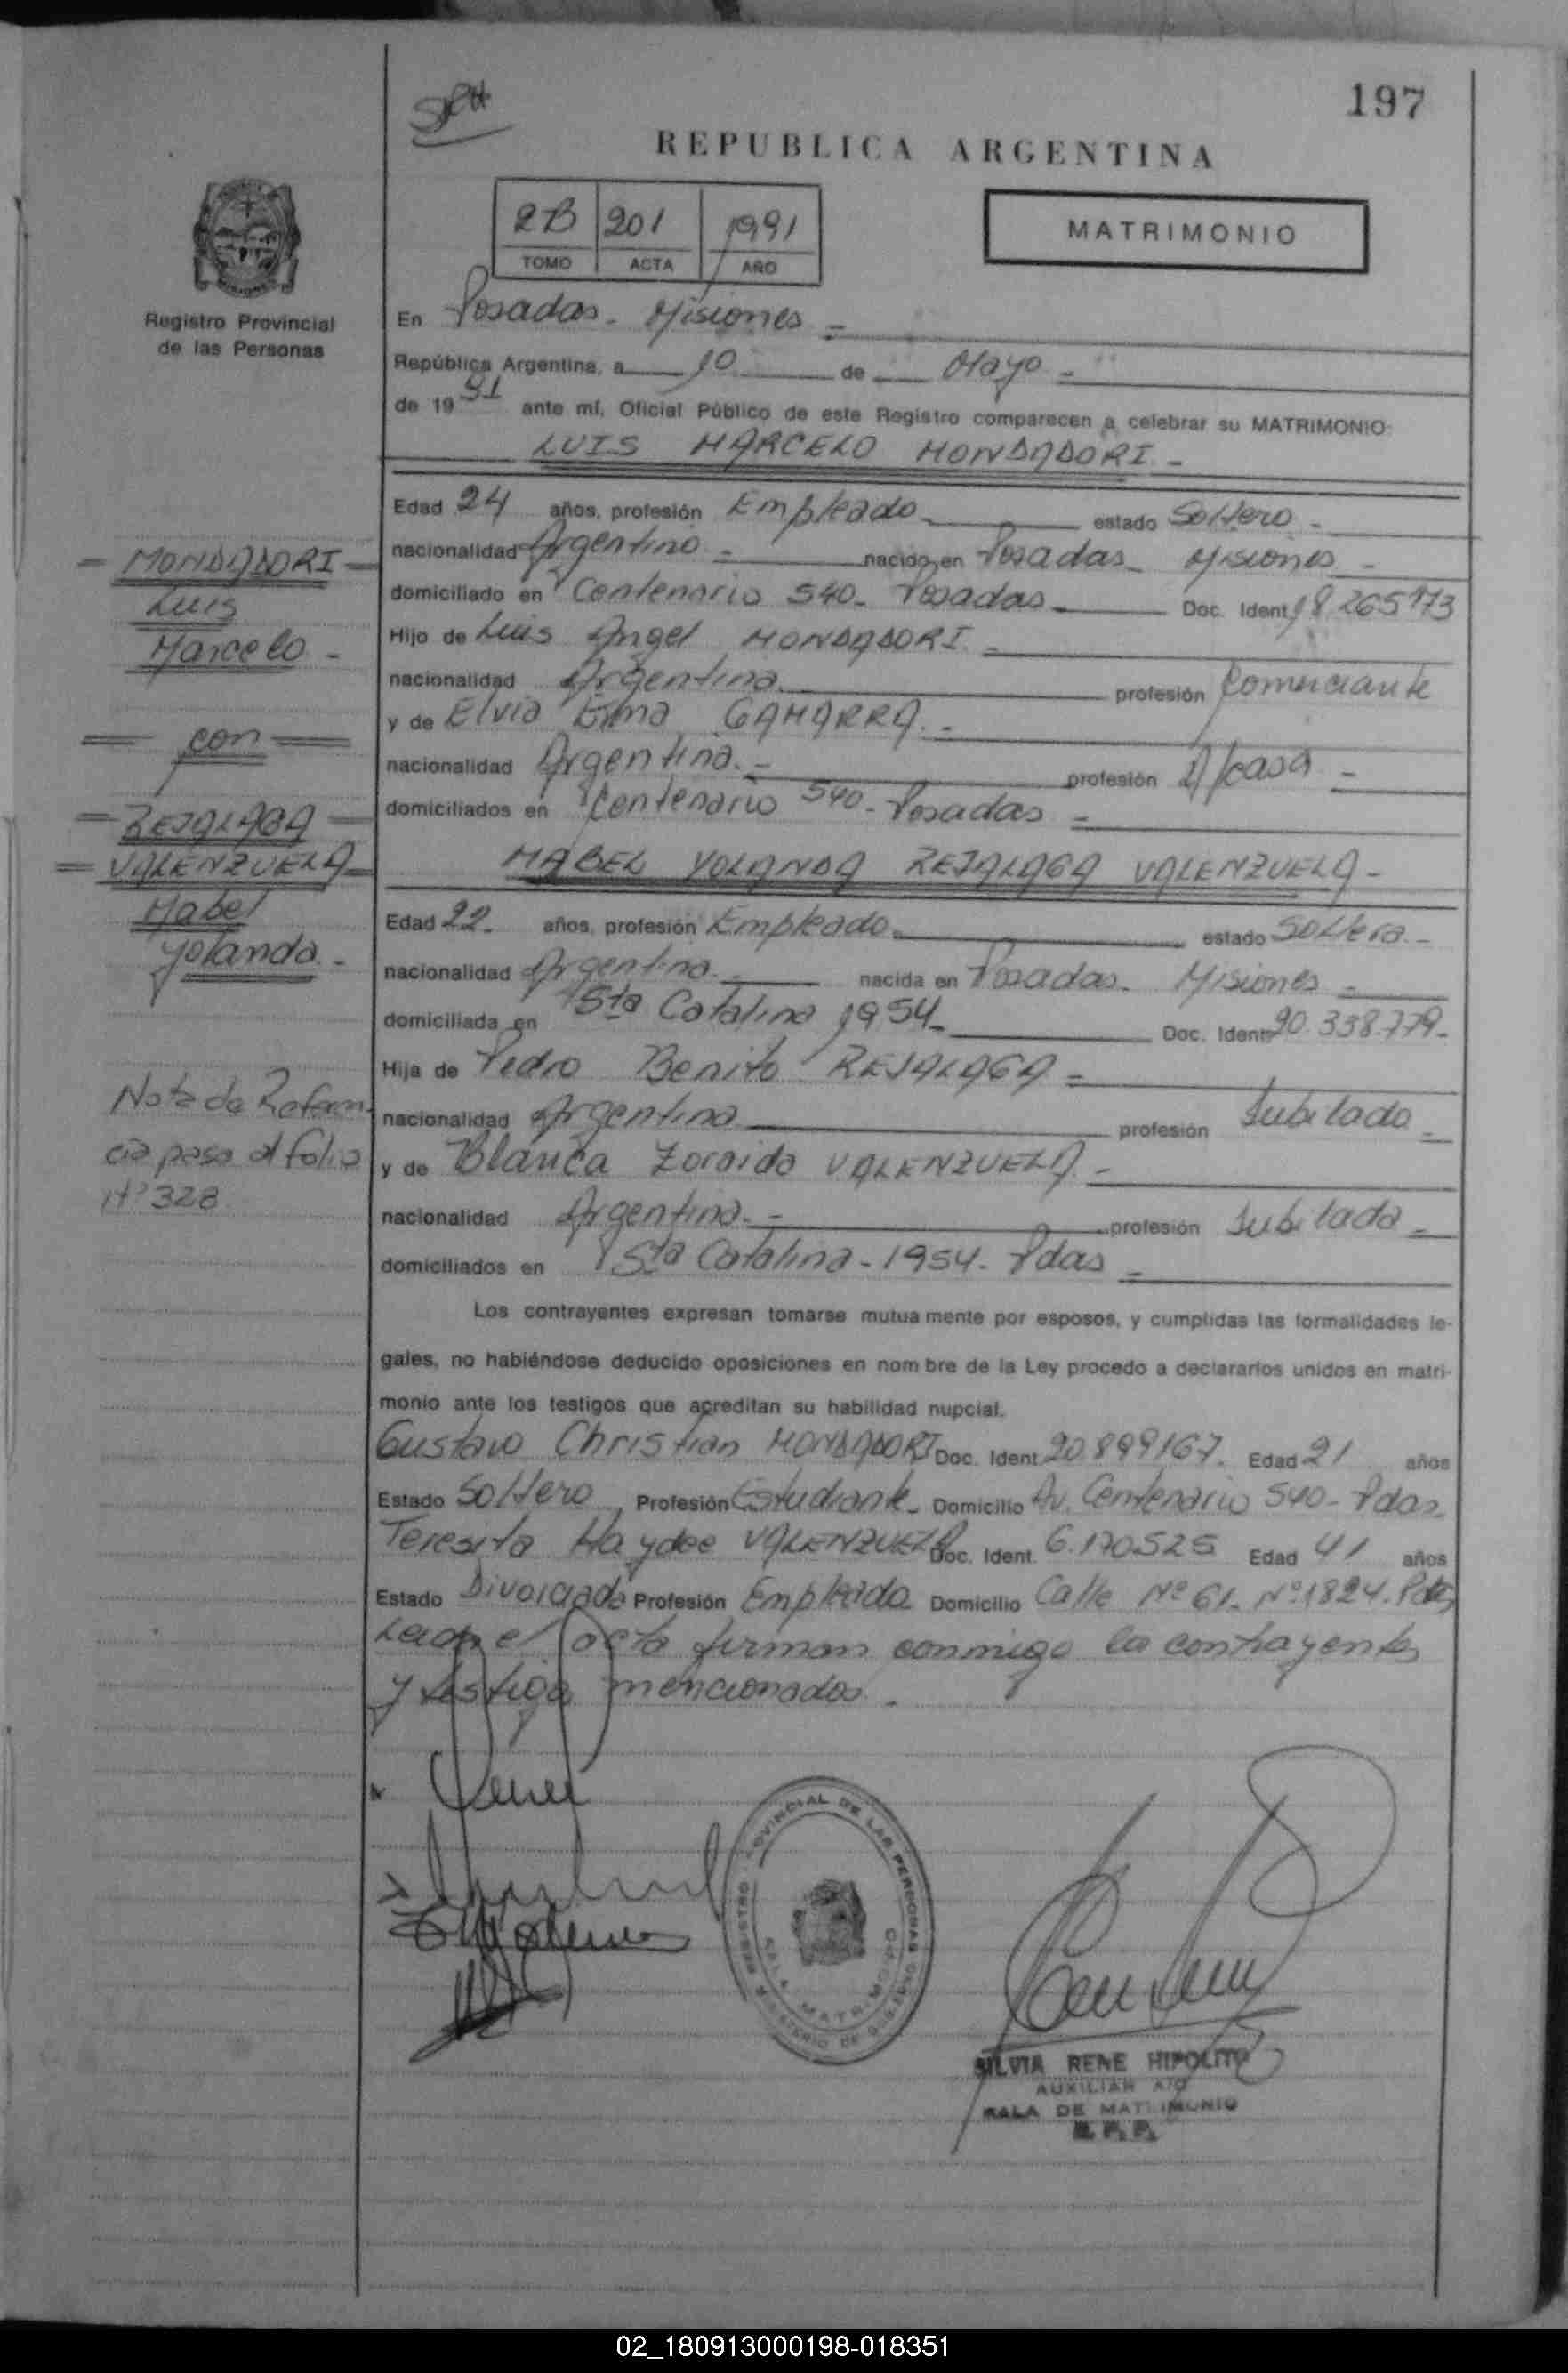 197
REPUBLICA ARGENTINA
2B 201 1991
TOMO ACTA AÑO
MATRIMONIO
Registro Provincial
de las Personas
En Posadas - Misiones =
República Argentina, a 10 de Mayo -
de 1991 ante mí, Oficial Público de este Registro comparecen a celebrar su MATRIMONIO
LUIS MARCELO MONDADORI -
Edad 24 años, profesión Empleado - estado Soltero -
nacionalidad Argentino - nacido en Posadas - Misiones -
domiciliado en Centenario 540 - Posadas - Doc. Ident 18.265973
Hijo de Luis Angel MONDADORI -
nacionalidad Argentina profesión Comerciante
y de Elvia GAMARRA -
nacionalidad Argentina - profesión D/casa -
domiciliados en Centenario 540 - Posadas =
MABEL YOLANDA REJALAGA VALENZUELA -
Edad 22 - años, profesión Empleado - estado Soltera -
nacionalidad Argentina - nacida en Posadas - Misiones -
domiciliada en Sta Catalina 1954 - Doc. Ident 20.338.779 -
Hija de Pedro Benito REJALAGA =
nacionalidad Argentina profesión Jubilado -
y de Blanca Zoraida VALENZUELA -
nacionalidad Argentina - profesión Jubilada -
domiciliados en Sta Catalina - 1954 - Pdas -
Los contrayentes expresan tomarse mutua mente por esposos, y cumplidas las formalidades le-
gales, no habiéndose deducido oposiciones en nom bre de la Ley procedo a declararlos unidos en matri-
monio ante los testigos que acreditan su habilidad nupcial.
Gustavo Christian MONDADORI Doc. Ident 20.899167. Edad 21 años
Estado Soltero Profesión Estudiante - Domicilio Av. Centenario 540 - Pdas -
Teresita Haydee VALENZUELA Doc. Ident. 6.170525 Edad 41 años
Estado Divorciada Profesión Empleada Domicilio Calle Nº 61 - Nº 1824. Pdas
Leida el acta firman conmigo los contrayentes
y testigos mencionados.
- MONDADORI -
Luis
Marcelo -
= con =
= REJALAGA =
= VALENZUELA =
Mabel
Yolanda -
Nota de Referen-
cia pasa al folio
Nº 328
REGISTRO PROVINCIAL DE LAS PERSONAS
MINISTERIO DE GOBIERNO
SALA MATRIMONIO
SILVIA RENE HIPOLITO
AUXILIAR
SALA DE MATRIMONIO
R. P. P.
02_180913000198-018351